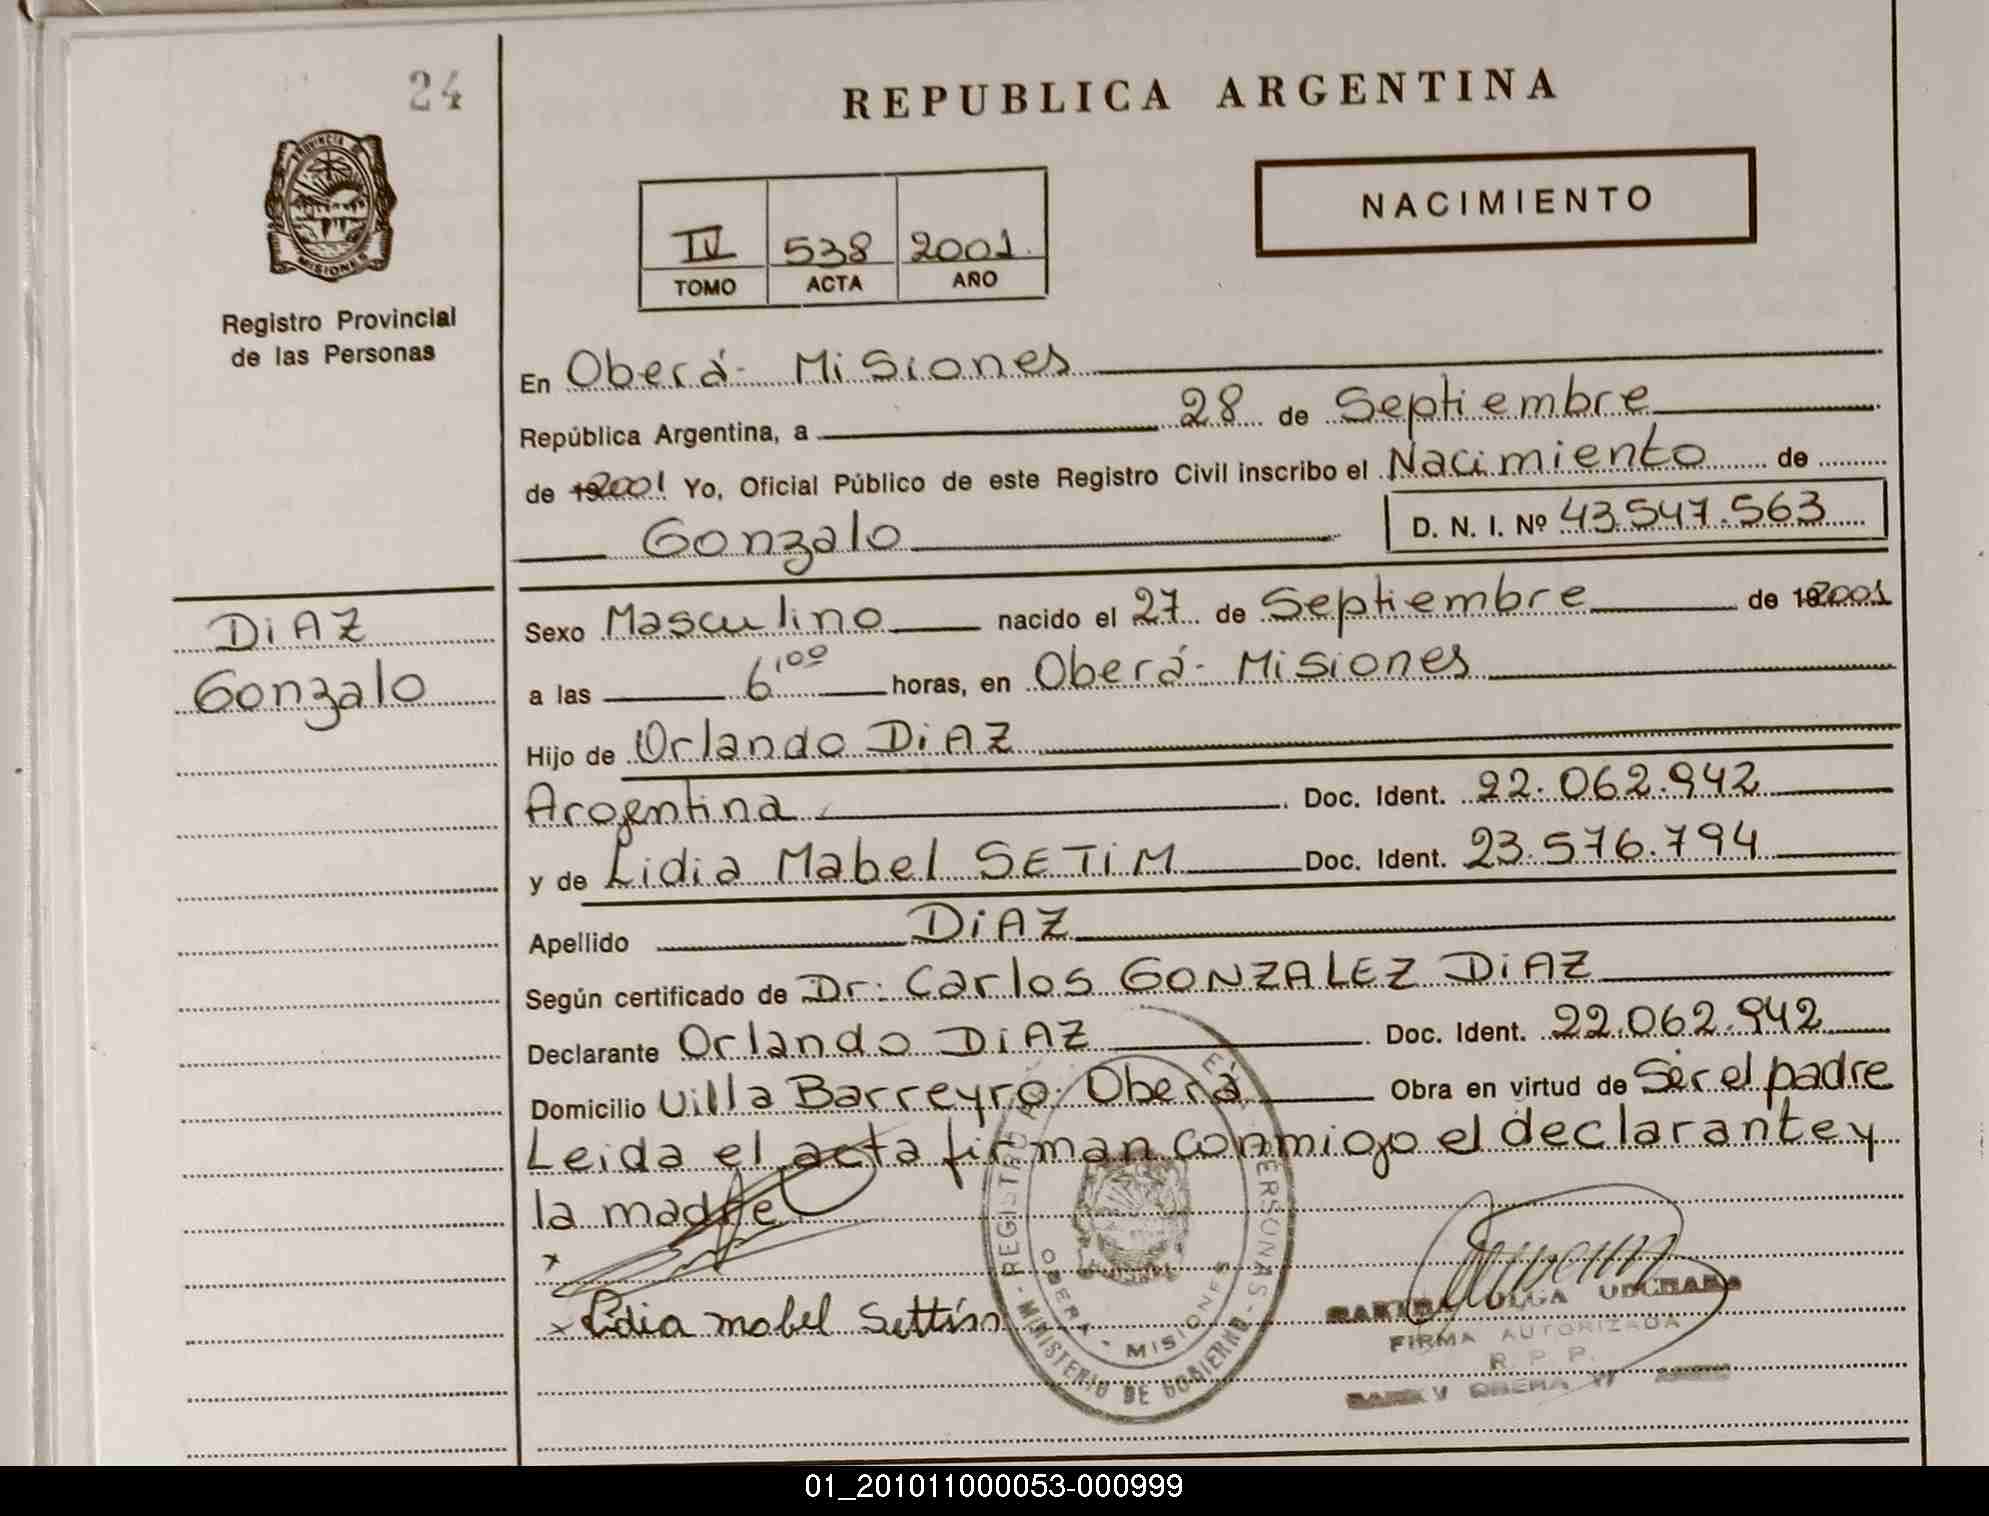 24
REPUBLICA ARGENTINA
NACIMIENTO
PROVINCIA DE
MISIONES
Registro Provincial
de las Personas
IV 538 2001.
TOMO ACTA AÑO
En Oberá - Misiones
República Argentina, a 28 de Septiembre
de 2001 Yo, Oficial Público de este Registro Civil inscribo el Nacimiento de
Gonzalo D. N. I. Nº 43.547.563
DiAZ
Gonzalo
Sexo Masculino nacido el 27 de Septiembre de 2001
a las 6,00 horas, en Oberá - Misiones
Hijo de Orlando DiAZ
Argentina Doc. Ident. 22.062.942
y de Lidia Mabel SETiM Doc. Ident. 23.576.794
Apellido DiAZ
Según certificado de Dr. Carlos GONZALEZ DiAZ
Declarante Orlando DiAZ Doc. Ident. 22.062.942
Domicilio Villa Barreyro - Oberá Obra en virtud de Ser el padre
Leida el acta firman conmigo el declarante y
la madre
x
x Lidia mabel Settim
PERSONAS
OBERA - MISIONES
- MINISTERIO DE GOBIERNO -
OLGA
FIRMA AUTORIZADA
R. P. P.
OBERA
01_201011000053-000999